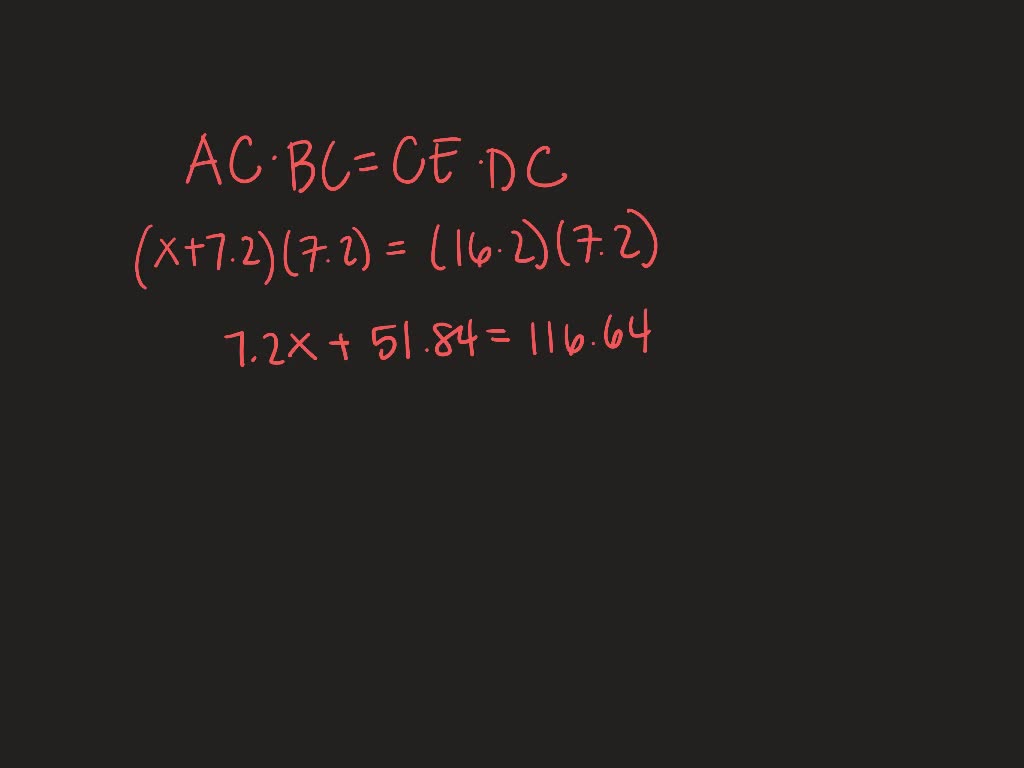 AC·BC=CE·DC
(x+7.2)(7.2) = (16.2)(7.2)
7.2x + 51.84 = 116.64